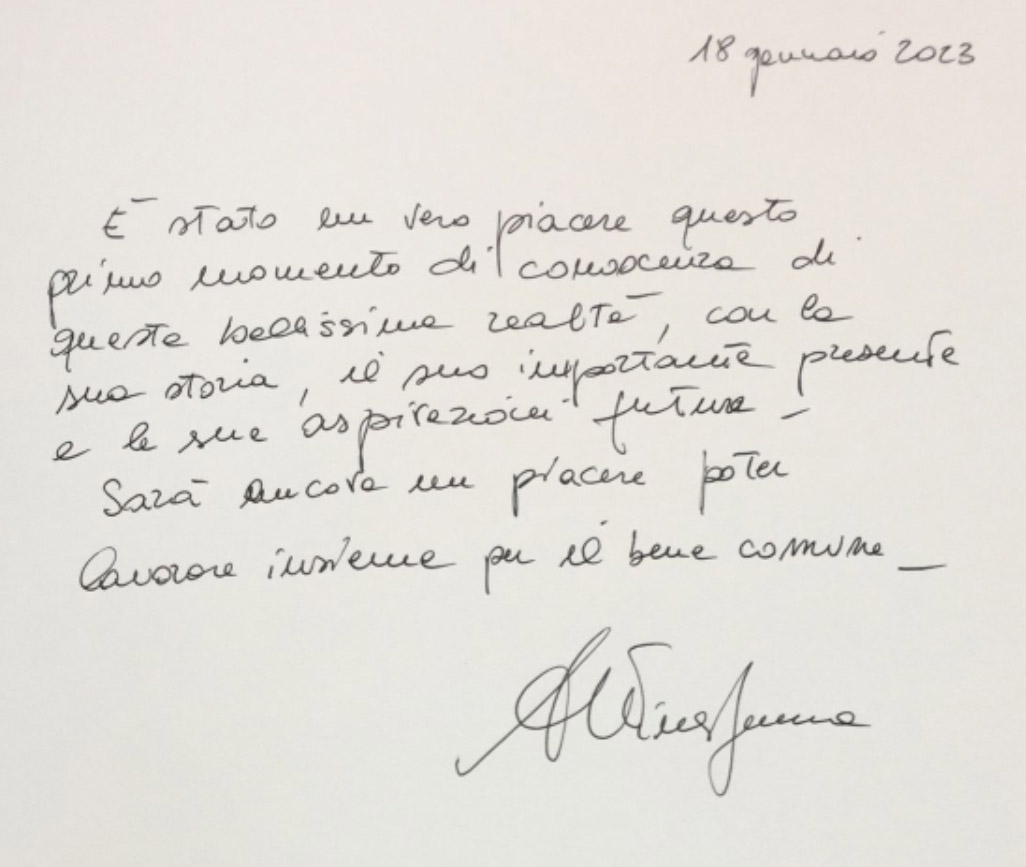 18 gennaio 2023
È stato un vero piacere questo
primo momento di conoscenza di
questa bellissima realtà, con la
sua storia, il suo importante presente
e le sue aspirazioni future -
Sarà ancora un piacere poter
lavorare insieme per il bene comune -